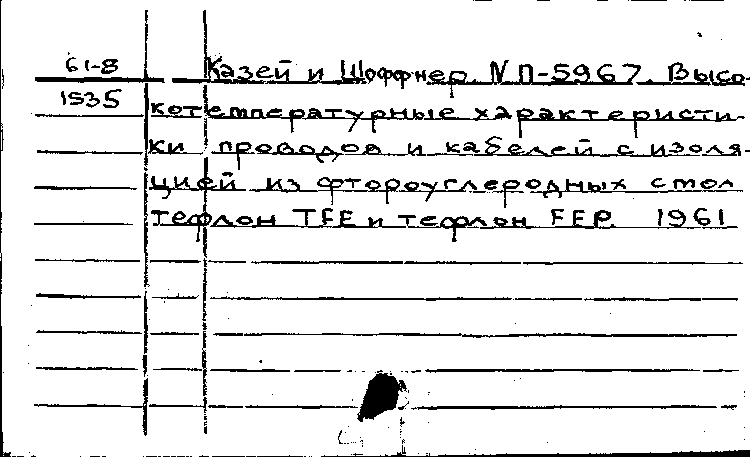 61-8 Казей и Шоффнер. NП-5967. Высо-
1535 котемпературные характеристи-
ки проводов и кабелей с изоля-
цией из фтороуглеродных смол
тефлон TFE и тефлон FEP. 1961